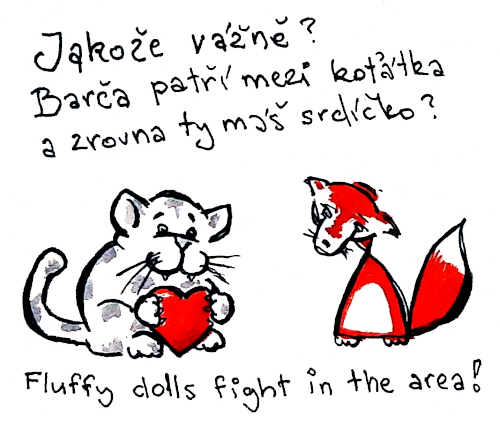 Jakože vážně?
Barča patří mezi koťátka
a zrovna ty máš srdíčko?
Fluffy dolls fight in the area!